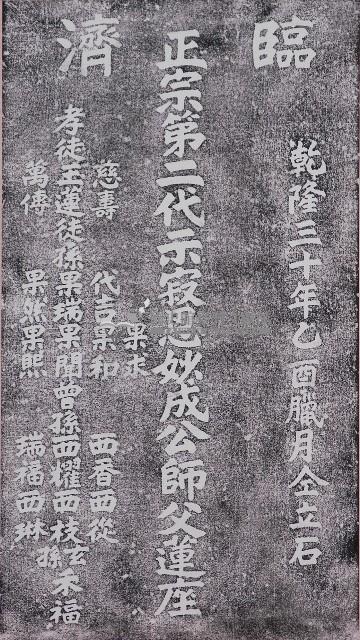 臨濟
乾隆三十年乙酉臘月仝立石
正宗第二代示寂恩妙成公師父蓮座
果求
慈壽 代吉果和 西香西從
孝徒玉蓮徒孫果瑞果聞曾孫西耀西枝玄孫禾福
萬傳 果然果熙 瑞福西琳